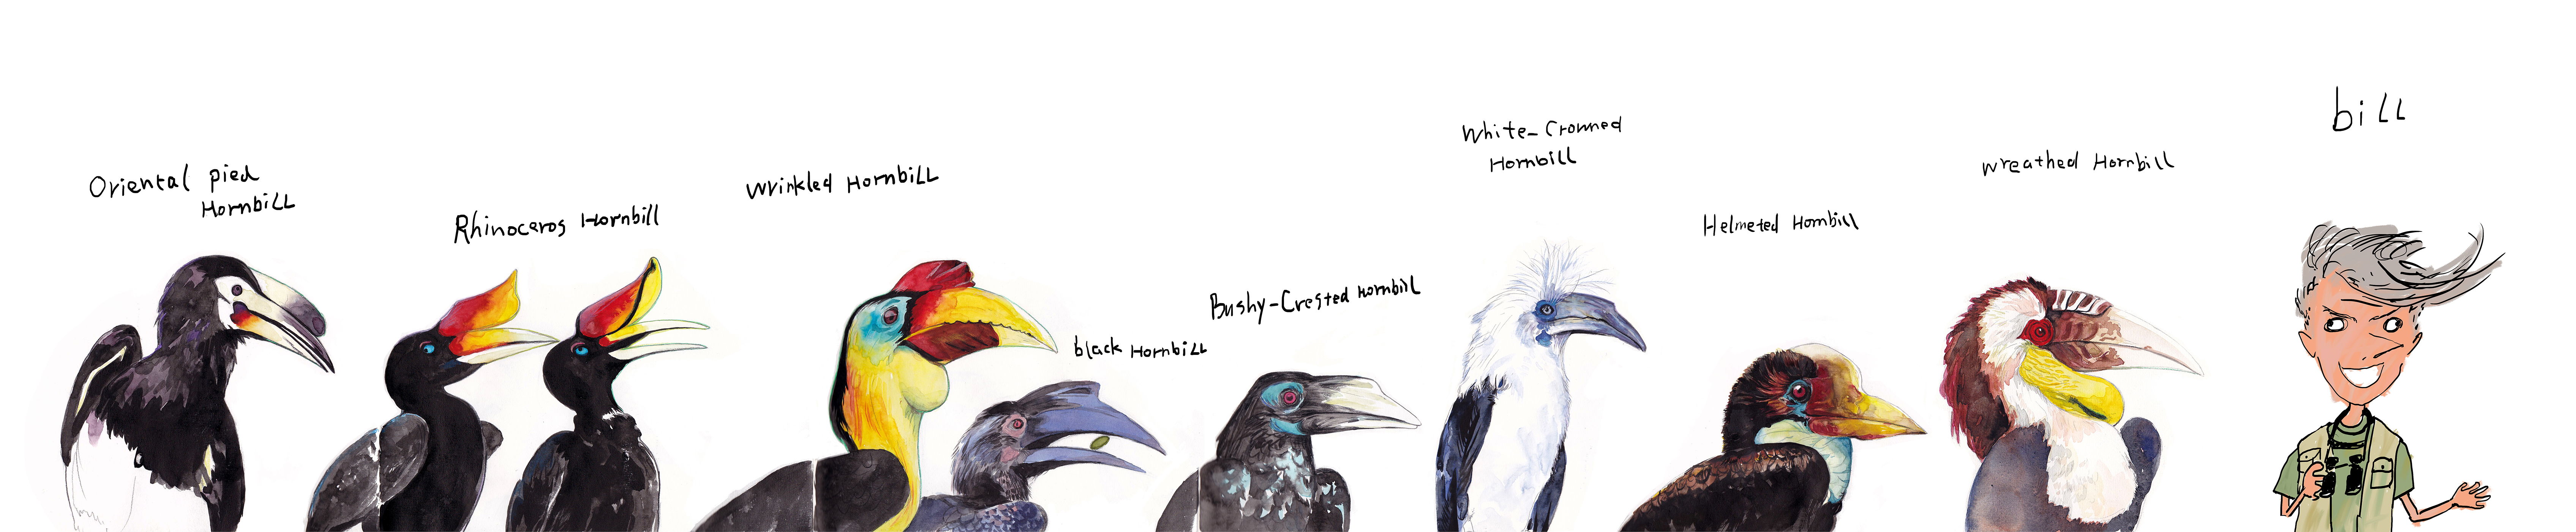 Oriental pied
Hornbill
Rhinoceros Hornbill
Wrinkled Hornbill
black Hornbill
Bushy-Crested Hornbill
White-Crowned
Hornbill
Helmeted Hornbill
wreathed Hornbill
bill